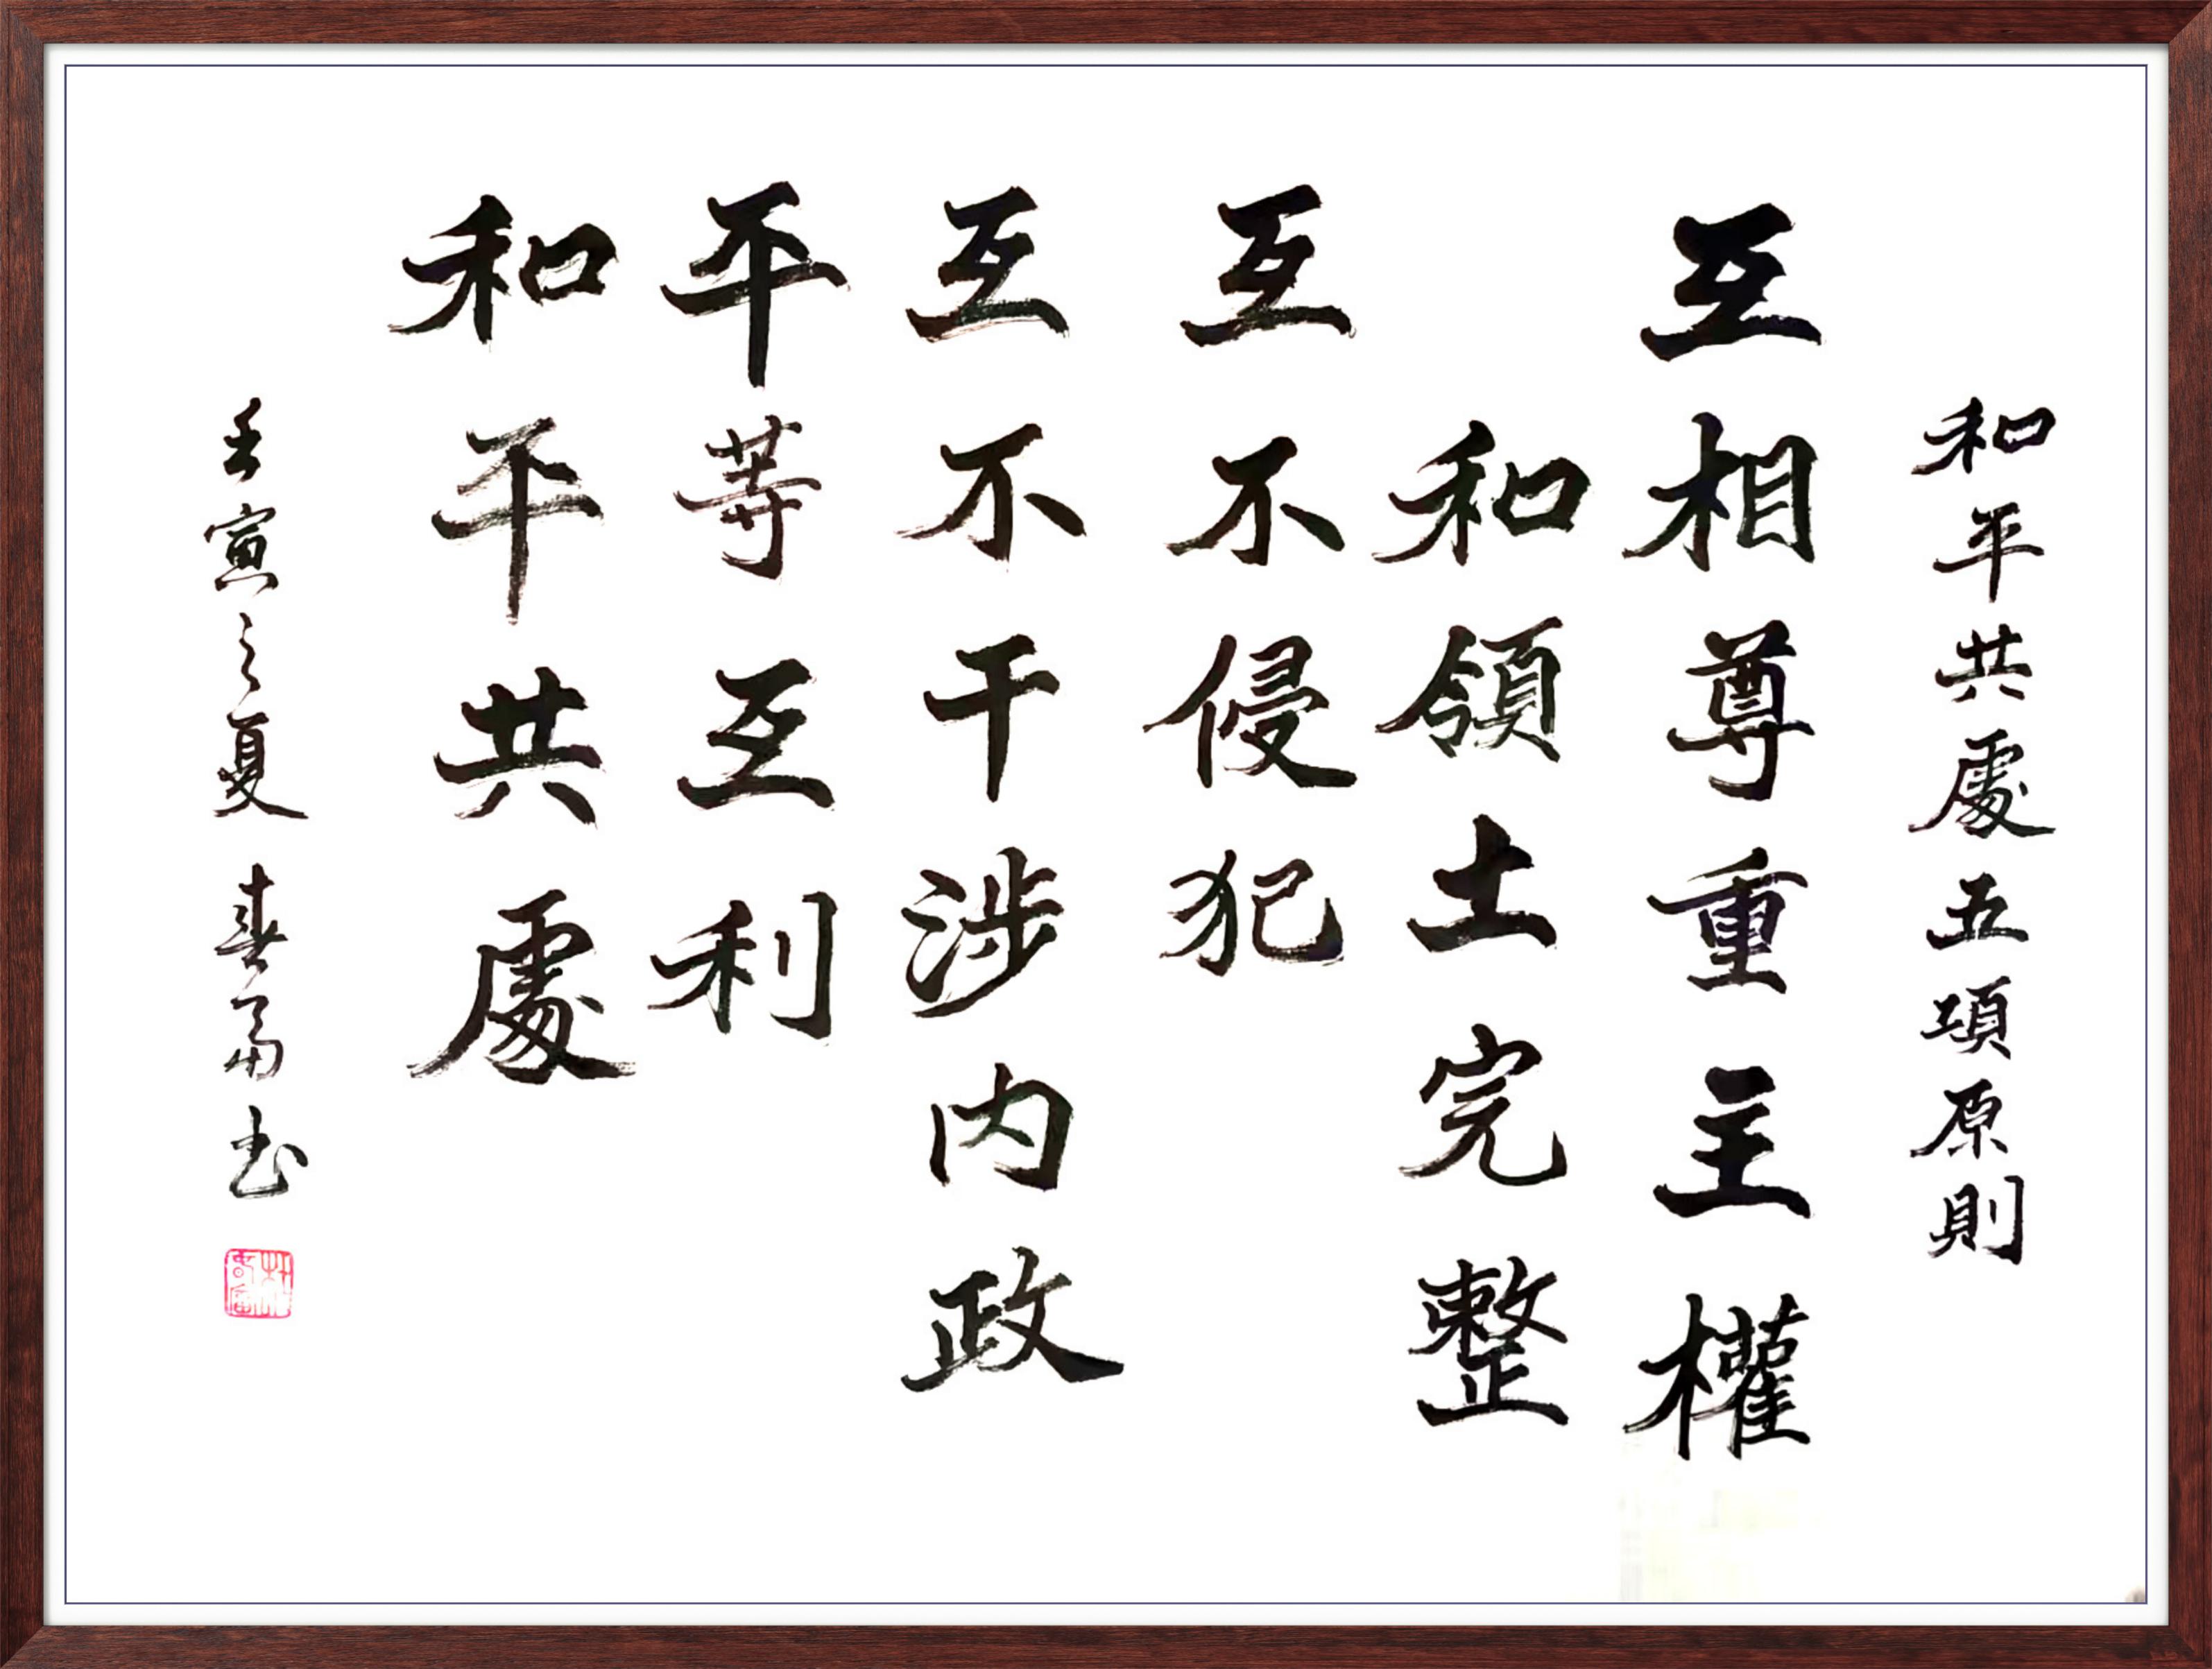 和平共處五項原則
互相尊重主權
和領土完整
互不侵犯
互不干涉内政
平等互利
和平共處
壬寅之夏 春富书